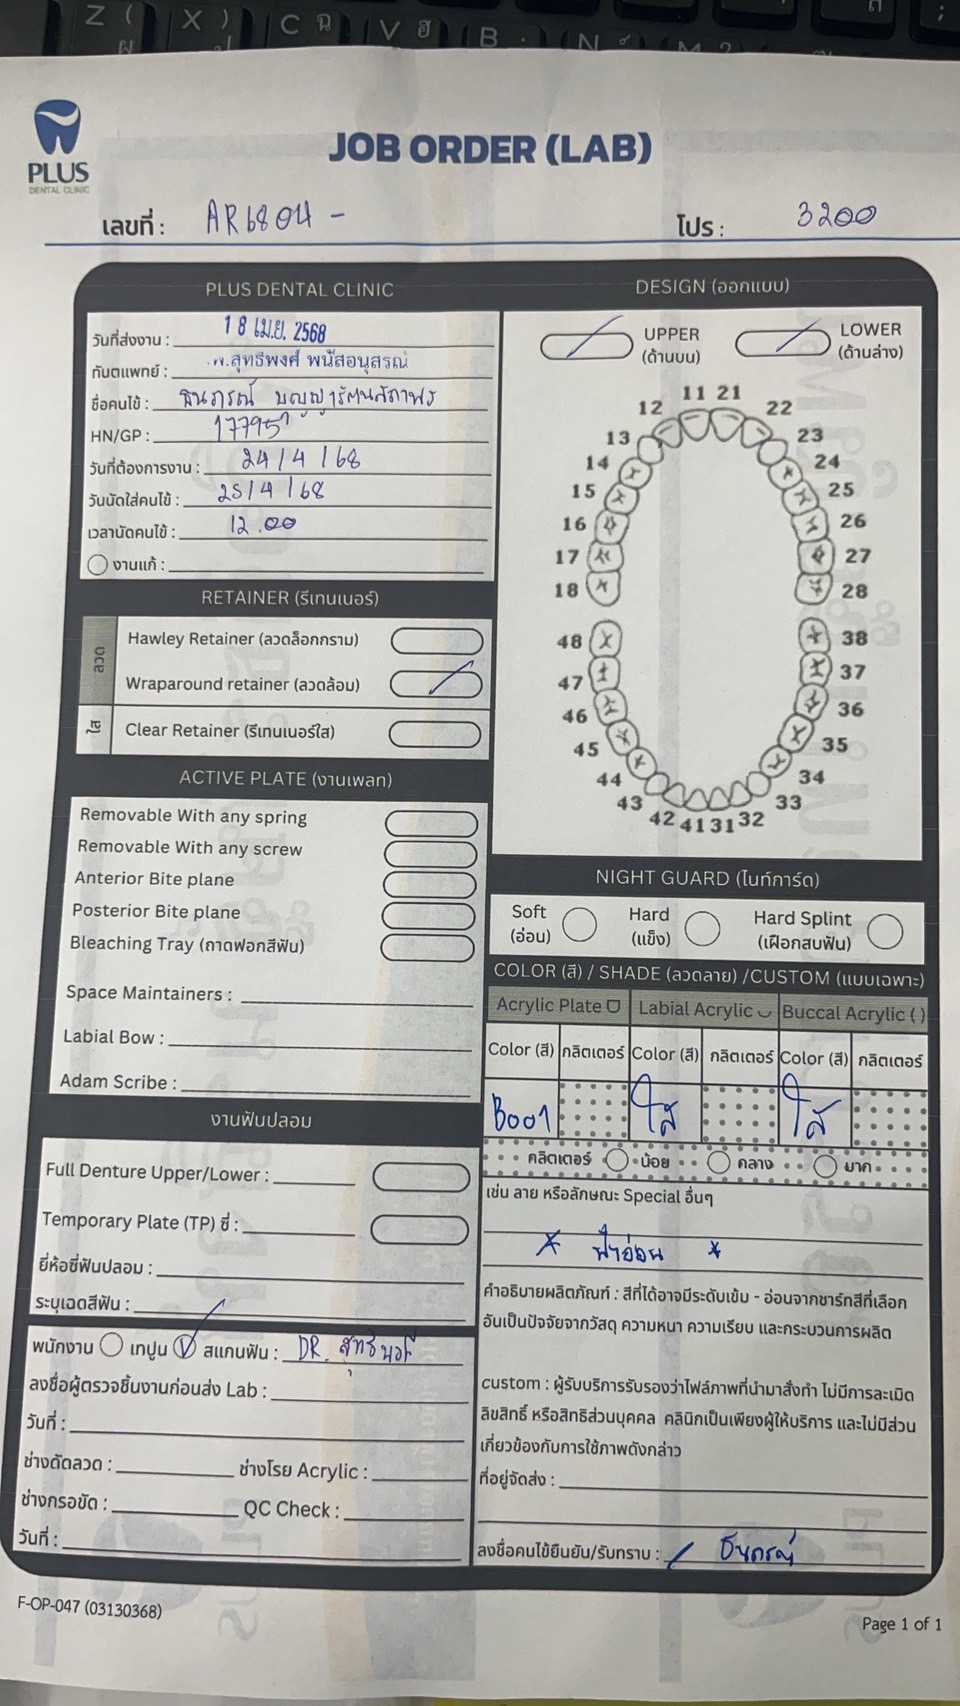 Z ( X ) C ฉ V ฮ B . N M ?
PLUS
DENTAL CLINIC
JOB ORDER (LAB)
เลขที่ : AR6804 -
โปร : 3200
PLUS DENTAL CLINIC
วันที่ส่งงาน : 18 เม.ย. 2568
ทันตแพทย์ : ท.สุทธิพงศ์ พนัสอนุสรณ์
ชื่อคนไข้ :
HN/GP : 177957
วันที่ต้องการงาน : 24 / 4 / 68
วันนัดใส่คนไข้ : 25 / 4 / 68
เวลานัดคนไข้ : 12.00
งานแก้ :
RETAINER (รีเทนเนอร์)
ลวด
Hawley Retainer (ลวดล็อกกราม)
Wraparound retainer (ลวดล้อม)
ใส
Clear Retainer (รีเทนเนอร์ใส)
ACTIVE PLATE (งานเพลท)
Removable With any spring
Removable With any screw
Anterior Bite plane
Posterior Bite plane
Bleaching Tray (ถาดฟอกสีฟัน)
Space Maintainers :
Labial Bow :
Adam Scribe :
งานฟันปลอม
Full Denture Upper/Lower :
Temporary Plate (TP) ซี่ :
ยี่ห้อซี่ฟันปลอม :
ระบุเฉดสีฟัน :
พนักงาน เทปูน สแกนฟัน : DR.
ลงชื่อผู้ตรวจชิ้นงานก่อนส่ง Lab :
วันที่ :
ช่างดัดลวด : ช่างโรย Acrylic :
ช่างกรอขัด : QC Check :
วันที่ :
DESIGN (ออกแบบ)
UPPER
(ด้านบน)
LOWER
(ด้านล่าง)
11 21
12 22
13 23
14 24
15 25
16 26
17 27
18 28
48 38
47 37
46 36
45 35
44 34
43 33
42 41 31 32
NIGHT GUARD (ไนท์การ์ด)
Soft
(อ่อน)
Hard
(แข็ง)
Hard Splint
(เฝือกสบฟัน)
COLOR (สี) / SHADE (ลวดลาย) /CUSTOM (แบบเฉพาะ)
Acrylic Plate Labial Acrylic Buccal Acrylic ( )
Color (สี) กลิตเตอร์ Color (สี) กลิตเตอร์ Color (สี) กลิตเตอร์
B001 ใส ใส
กลิตเตอร์ น้อย กลาง มาก
เช่น ลาย หรือลักษณะ Special อื่นๆ
* ฟ้าอ่อน *
คำอธิบายผลิตภัณฑ์ : สีที่ได้อาจมีระดับเข้ม - อ่อนจากชาร์ทสีที่เลือก
อันเป็นปัจจัยจากวัสดุ ความหนา ความเรียบ และกระบวนการผลิต
custom : ผู้รับบริการรับรองว่าไฟล์ภาพที่นำมาสั่งทำ ไม่มีการละเมิด
ลิขสิทธิ์ หรือสิทธิส่วนบุคคล คลินิกเป็นเพียงผู้ให้บริการ และไม่มีส่วน
เกี่ยวข้องกับการใช้ภาพดังกล่าว
ที่อยู่จัดส่ง :
ลงชื่อคนไข้ยืนยัน/รับทราบ :
F-OP-047 (03130368)
Page 1 of 1